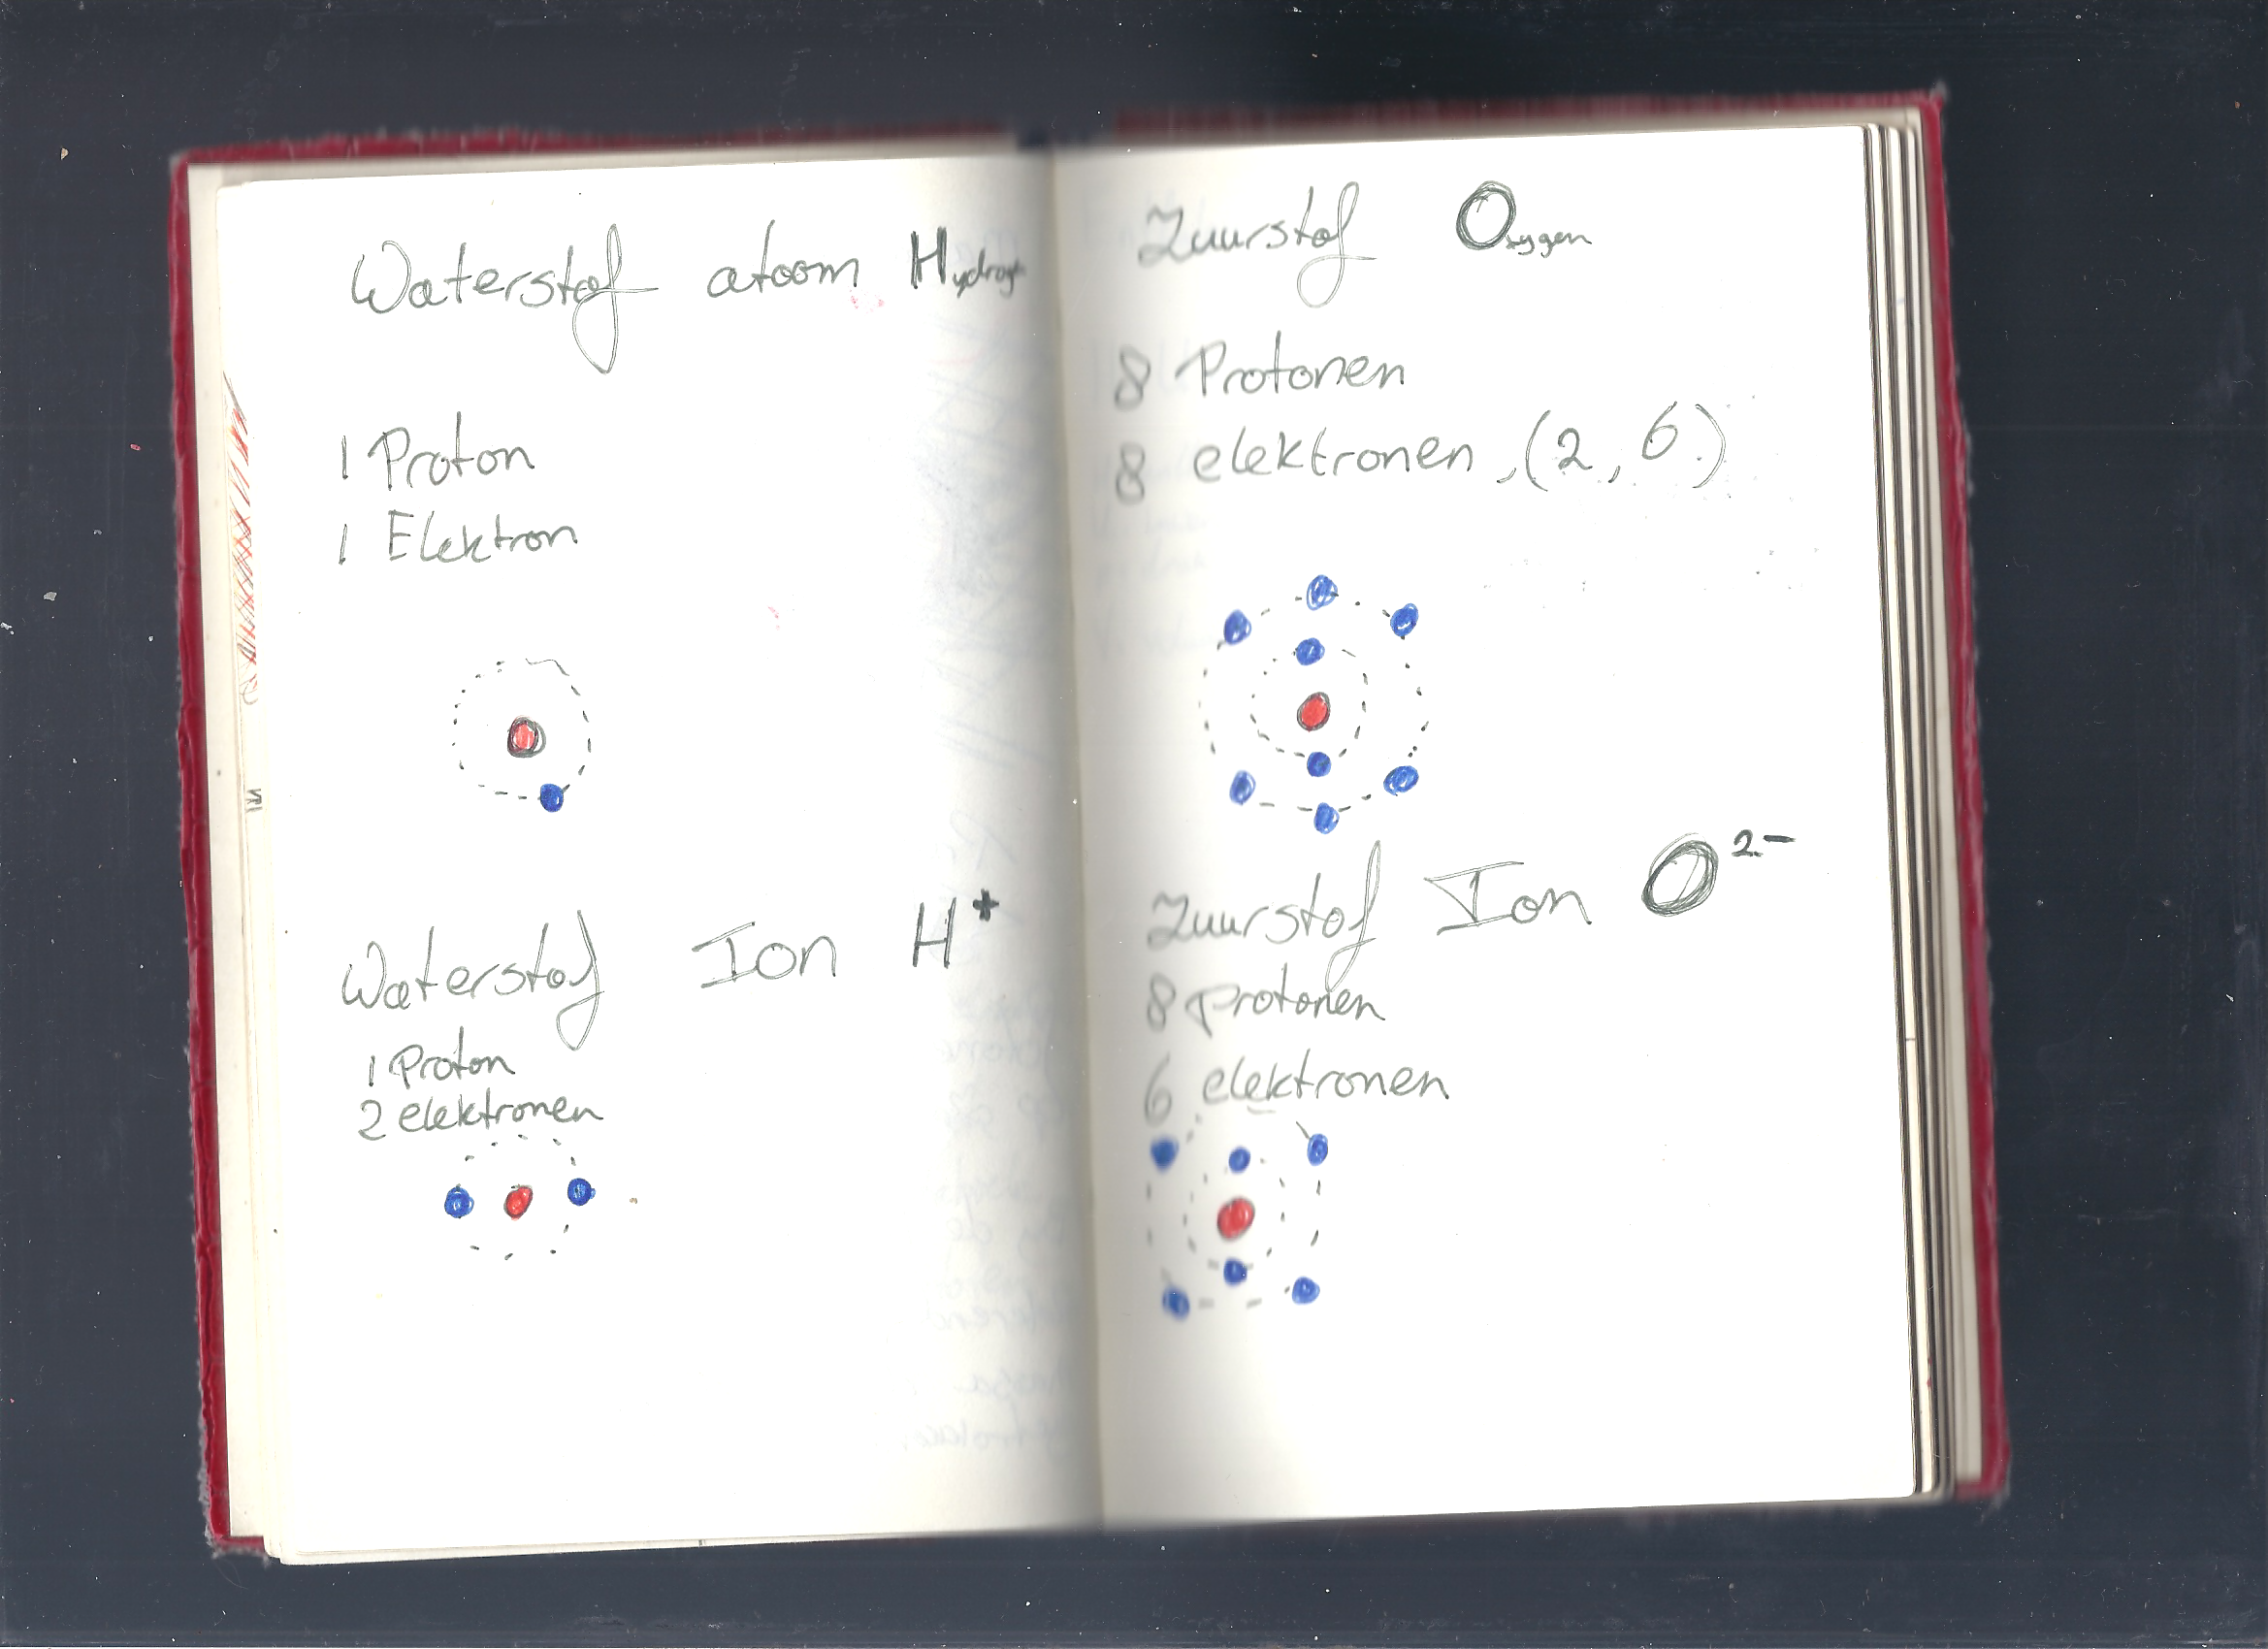 Waterstof atoom Hydrog
1 Proton
1 Elektron
Waterstof Ion H⁺
1 Proton
2 elektronen
Zuurstof Oxygen
8 Protonen
8 elektronen, (2, 6.)
Zuurstof Ion O²⁻
8 protonen
6 elektronen